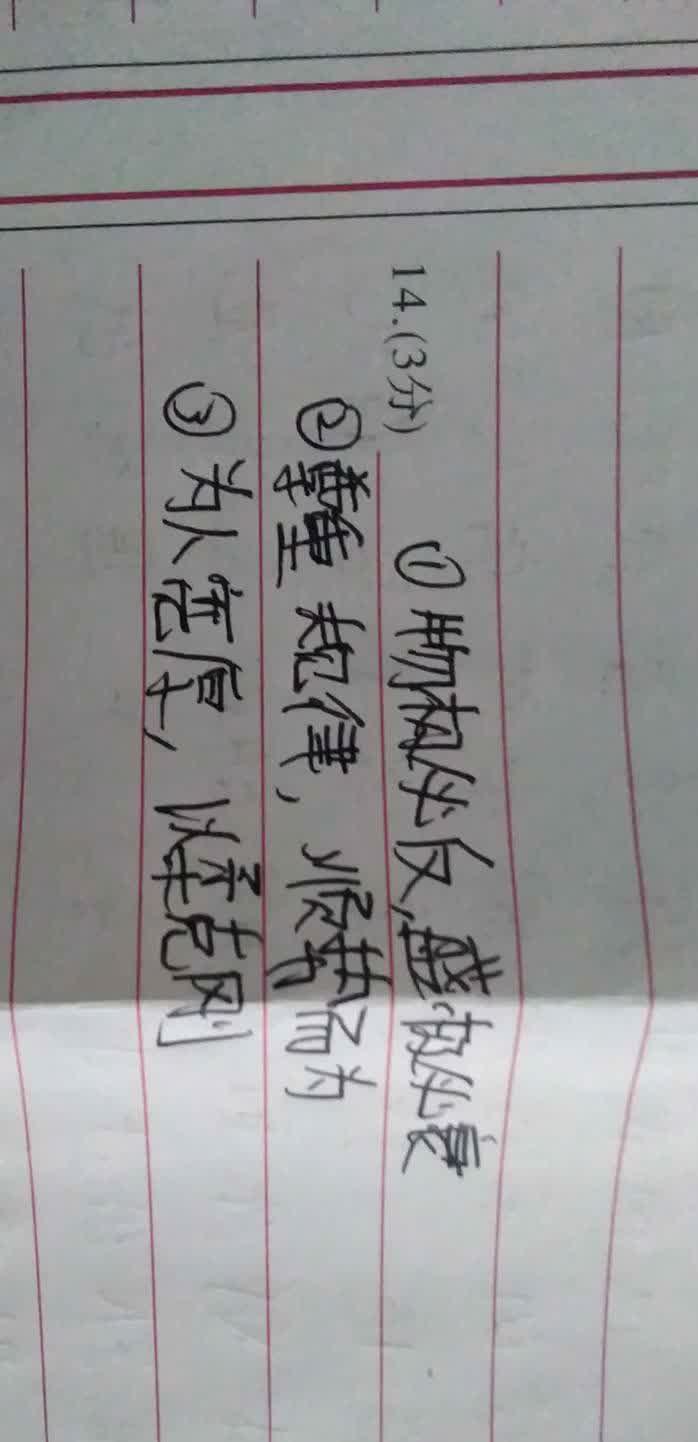 14.(3分)
①物极必反,盛极必衰
②尊重规律,顺势而为
③为人宽厚,以柔克刚